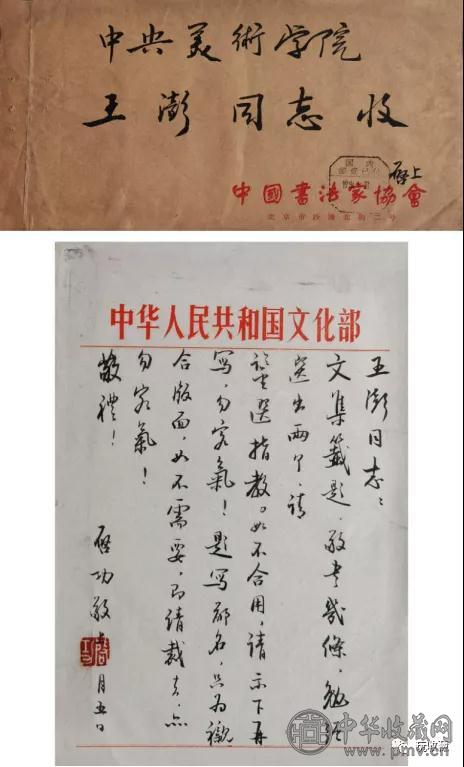 中央美術学院
王澎同志收
启上
国内
邮资已付
中國書法家協會
北京市沙滩北街二号
中华人民共和国文化部
王澎同志:
文集籤題,敬书幾條,勉强
选出两个,请
鉴选指教。如不合用,请示下再
写,勿客氣!题写鄙名,只为襯
合版面,如不需要,即请裁去,亦
勿客氣!
敬禮!
启功敬上 月五日
中华收藏网